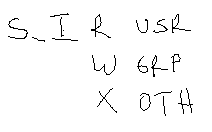 S_I R USR
W GRP
X OTH